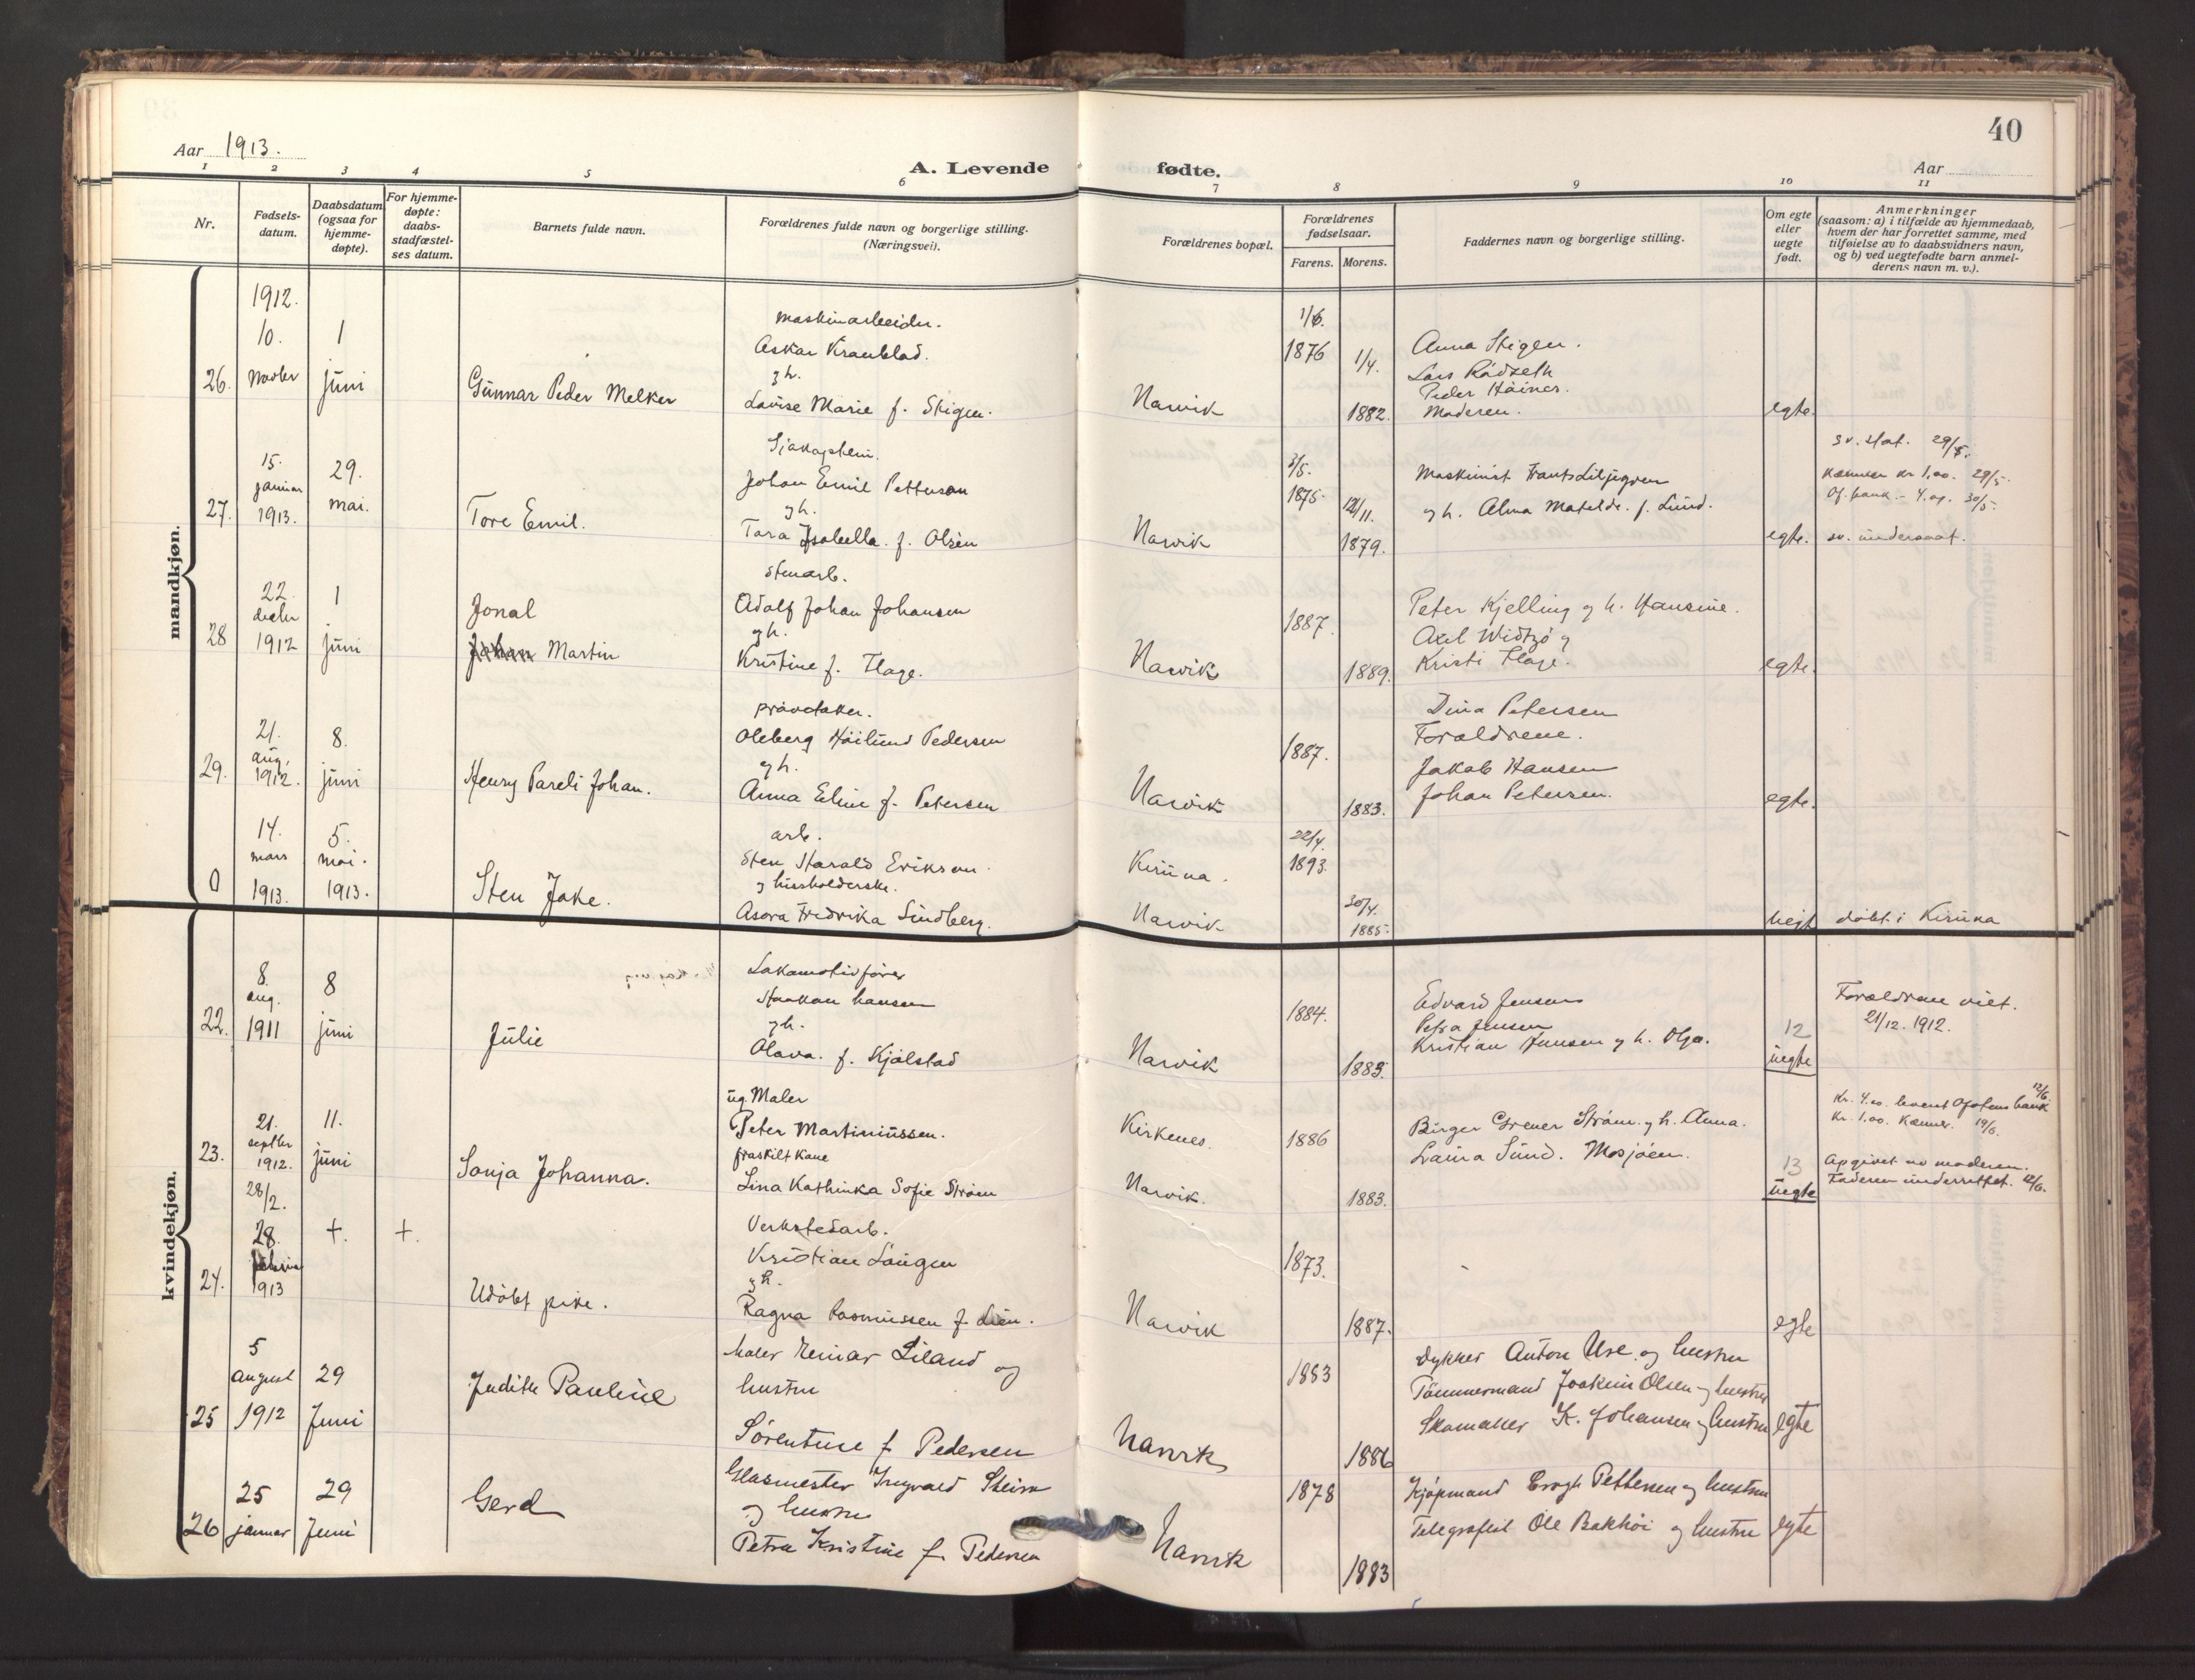 40
Aar 1913.
A. Levende fødte.
Aar
1 2 3 4 5 6 7 8 9 10 11
Nr.
Fødsels-
datum.
Daabsdatum
(ogsaa for
hjemme-
døpte).
For hjemme-
døpte:
daabs-
stadfæstel-
ses datum.
Barnets fulde navn.
Forældrenes fulde navn og borgerlige stilling.
(Næringsvei).
Forældrenes bopæl.
Forældrenes
fødselsaar.
Farens. Morens.
Faddernes navn og borgerlige stilling.
Om egte
eller
uegte
født.
Anmerkninger
(saasom: a) i tilfælde av hjemmedaab,
hvem der har forrettet samme, med
tilføielse av to daabsvidners navn,
og b) ved uegtefødte barn anmel-
derens navn m. v.).
mandkjøn.
26.
1912.
10.
Novbr
1
juni
Gunnar Peder Melker
maskinarbeider.
Askar Kranblad.
g h.
Lovise Marie f. Stigen.
Narvik
1/6.
1876
1/4.
1882.
Anna Stigen.
Lars Rødseth
Peder
Moderen.
egte.
27.
15.
januar
1913.
29.
mai.
Tore Emil.
Johan Emil Petterson
g h.
Tora Isabella. f. Olsen
Narvik
3/5.
1875.
12/11.
1879.
Maskinist Frants Liljegren
g h. Alma Matilde. f. Lund.
egte.
sv. stat. 29/5.
Kæmner kr 1,00. 29/5
Of. bank - 4.00. 30/5.
sv. undersaat.
28
22
decbr
1912
1
juni
Jonal
Johan Martin
Stenarb.
Adolf Johan Johansen
g h.
Kristine f. Flage.
Narvik
1887.
1889.
Peter Kjelling g h. Hansine.
Axel Widtzö g
Kristi Flage.
egte.
29.
21.
aug.
1912.
8.
juni
Henry Pareli Johan.
prøvetaker.
Oleberg Höilund Pedersen
g h.
Anna Eline f. Petersen
Narvik
1887.
1883.
Dina Petersen
Forældrene.
Jakob Hansen
Johan Petersen.
egte.
0
14.
mars
1913.
5.
mai.
1913.
Sten Jake.
arb.
Sten Harald Erikson.
g husholderske.
Asora Fredrika Lindberg.
Kiruna.
Narvik
22/4.
1893.
30/4.
1885.
uegt
döbt i Kiruna
kvindekjøn.
22.
8.
aug.
1911
8
juni
Julie
Lokomotivfører
Haakon Hansen
g h.
Olava. f. Kjølstad
Narvik
1884.
1883.
Edvard Jensen
Petra Jensen
Kristian Jensen g h. Olga.
12
uegte
Forældrene viet.
21/12. 1912.
23.
21.
septbr
1912.
11.
juni
Sonja Johanna.
ug. Maler
Peter Martiniussen.
fraskilt Kone
Lina Kathinka Sofie Strøm
Kirkenes.
Narvik.
1886
1883.
Birger Grener Strøm. g h. Anna.
Laura Lund. Mosjøen.
13
uegte
Kr. 4.00. levert Ofotens bank 12/6.
Kr. 1.00. Kæmner. 19/6.
Opgivet av moderen.
Faderen underrettet. 12/6.
24.
28/2.
28.
februar
1913
+.
+.
Udöbt pike.
Verkstedarb.
Kristian Langen
g h.
Ragna Rasmussen f. Lien.
Narvik
1873.
1887.
egte
25
5
august
1912
29
Juni
Judith Pauline
Maler Reinar Liland og
hustru
Sörentine f Pedersen
Narvik
1883
1886
Dykker Anton Use. og hustru
Tömmermand Joakim Olsen og hustru
Skomaker K. Johansen og hustru
egte
26
25
januar
29
Juni
Gerd
Glasmester Ingvald Steira
og hustru
Petra Kristine f. Pedersen
Narvik
1878
1883
Kjøpmand Krogh Pettersen og hustru
Telegrafist Ole Bakhöi og hustru
egte